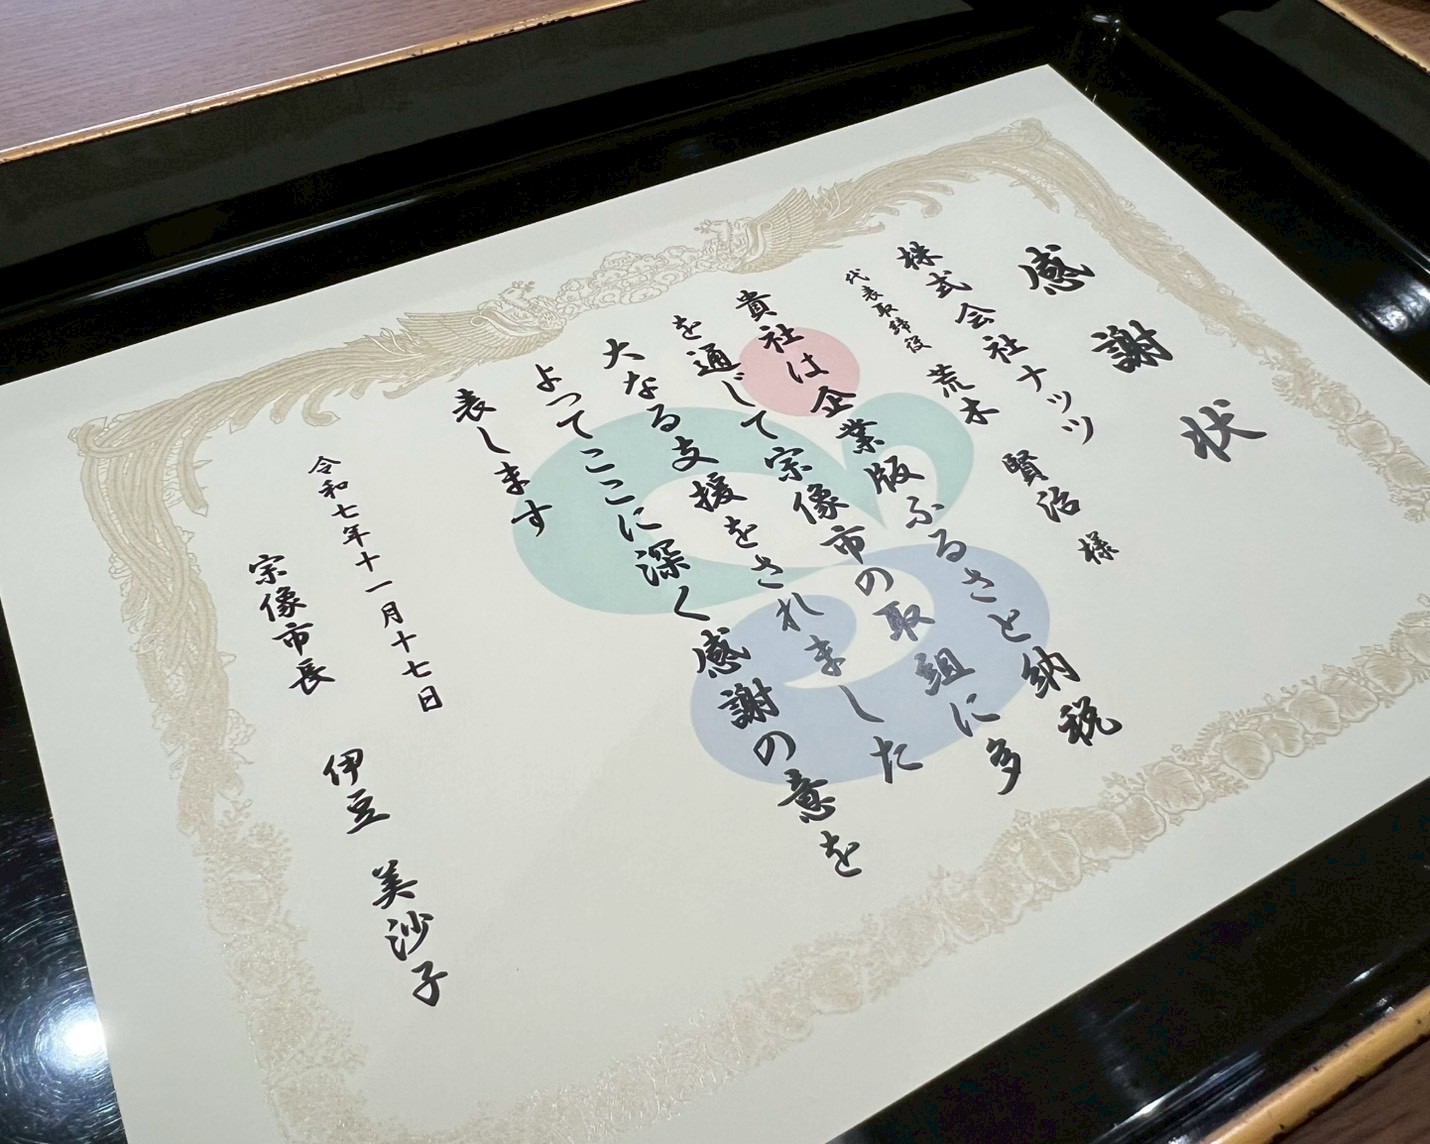 感謝状
株式会社ナッツ
代表取締役 荒木 賢治 様
貴社は企業版ふるさと納税
を通じて宗像市の取組に多
大なる支援をされました
よってここに深く感謝の意を
表します
令和七年十一月十七日
宗像市長 伊豆 美沙子